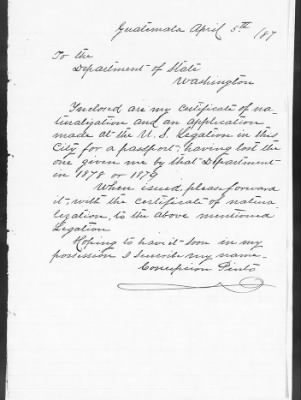 Guatemala April 5th /87
To the
Department of State
Washington
Inclosed are my certificate of na-
turalization and an application
made at the U. S. Legation in this
City for a passport, having lost the
one given me by that Department
in 1878 or 1879
When issued please forward
it with the certificate of natura
lization, to the above mentioned
Legation
Hoping to have it soon in my
possession I subscribe my name-
Concepcion Pinto